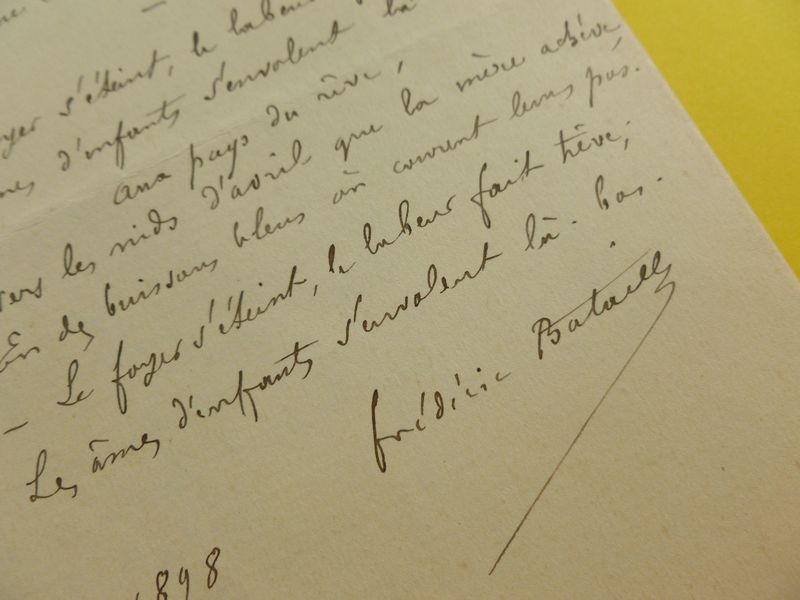 s'éteint, le labeur
d'enfants s'envolent là
Aux pays du rêve,
vers les nids d'avril que la mère achève
des buissons bleus où courent leurs pas.
— Le foyer s'éteint, le labeur fait trêve;
Les âmes d'enfants s'envolent là-bas.
Frédéric Bataille
1898